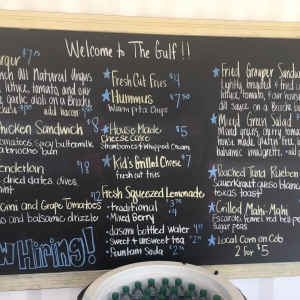 Welcome to The Gulf!!
urger $7.75
nch All Natural Angus
lettuce, tomato, and one
garlic aioli on a Brioche
add bacon
Chicken Sandwich $8
tomatoes spicy buttermilk
a brioche bun
Tenderloin
dried dates, olives,
mint
ini and Grape Tomatoes $12
and balsamic drizzle
W HiRiNG!
Fresh Cut Fries $4
Hummus $7.50
Warm pita Chips
House Made $5
Cheese Cake
Strawberries & Whipped Cream
Kid's Grilled Cheese $7
fresh cut fries
Fresh Squeezed Lemonade
• traditional $3.75
• Mixed Berry $4
• dasani bottled water
• sweet & unsweet tea
• Fountain Soda
Fried Grouper Sandwich
Lightly breaded & fried
lettuce, tomato, & our house
dill sauce on a Brioche
Mixed Green Salad
Mixed greens, cherry tomatoes
house made gluten free
balsamic vinaigrette.
Poached Tuna Rueben
Sauerkraut, gueso blanco
texas toast
Grilled Mahi-Mahi
Escarole, fennel, red bell pepper
Sugar peas
Local Corn on Cob
2 for $5